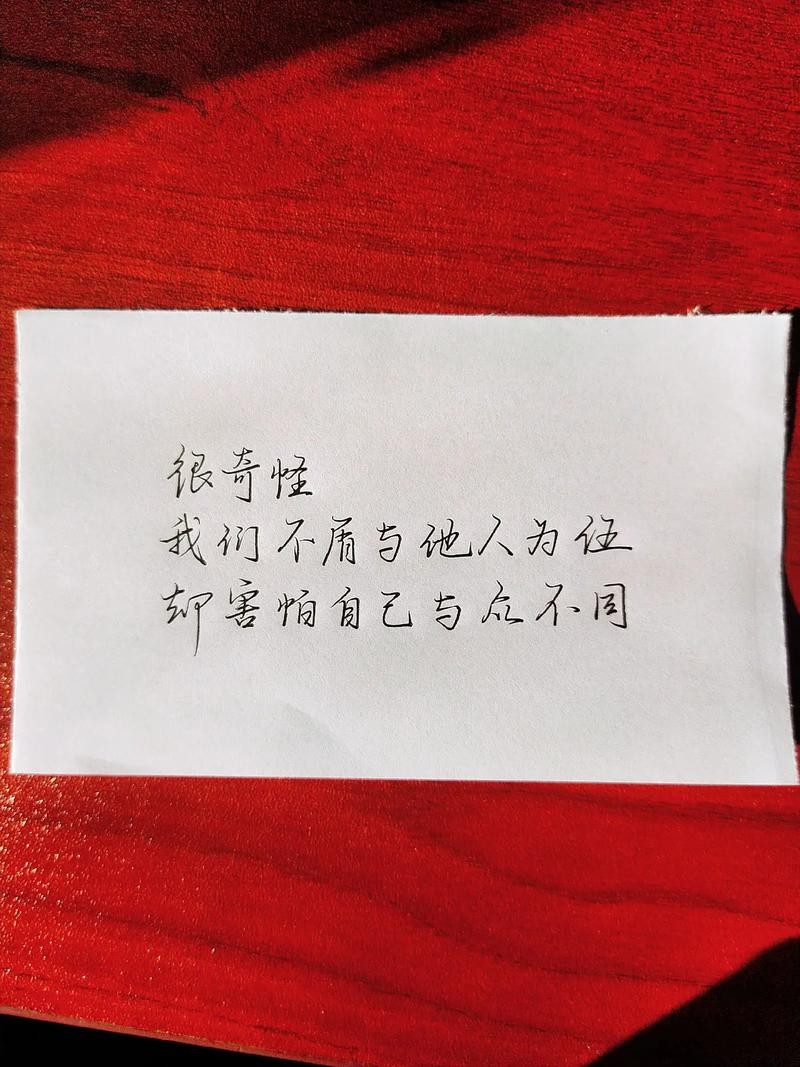 很奇怪
我们不屑与他人为伍
却害怕自己与众不同